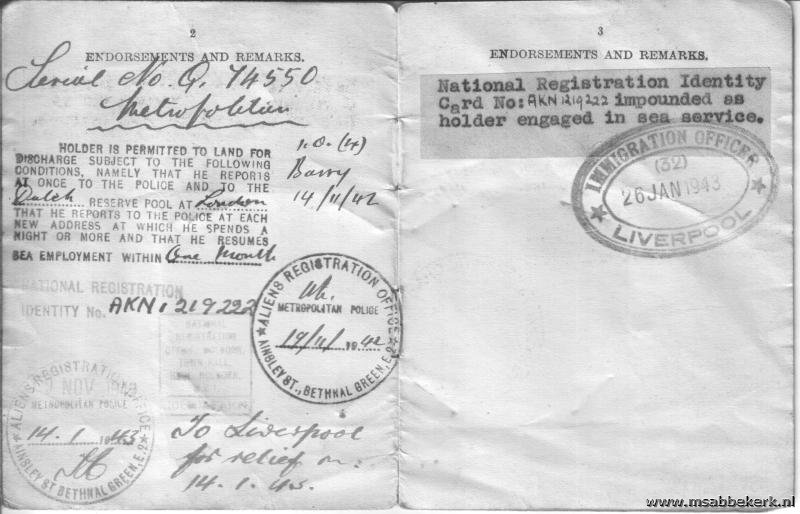 2
ENDORSEMENTS AND REMARKS.
Serial No. Q. 74550
Metropolitan
HOLDER IS PERMITTED TO LAND FOR
DISCHARGE SUBJECT TO THE FOLLOWING
CONDITIONS, NAMELY THAT HE REPORTS
AT ONCE TO THE POLICE AND TO THE
Dutch RESERVE POOL AT London
THAT HE REPORTS TO THE POLICE AT EACH
NEW ADDRESS AT WHICH HE SPENDS A
NIGHT OR MORE AND THAT HE RESUMES
SEA EMPLOYMENT WITHIN One Month
I.O. (4)
Barry
14/11/42
NATIONAL REGISTRATION
IDENTITY No. AKN 1219222
ALIENS REGISTRATION OFFICE
METROPOLITAN POLICE
19/11/1942
AINSLEY ST., BETHNAL GREEN, E.2
NATIONAL
REGISTRATION
TOWN HALL
ALIENS REGISTRATION OFFICE
NOV
METROPOLITAN POLICE
14.1.1943
AINSLEY ST BETHNAL GREEN, E.2
To Liverpool
for relief on:
14.1.43.
3
ENDORSEMENTS AND REMARKS.
National Registration Identity
Card No: AKN 1219222 impounded as
holder engaged in sea service.
IMMIGRATION OFFICER
(32)
26 JAN 1943
LIVERPOOL
www.msabbekerk.nl